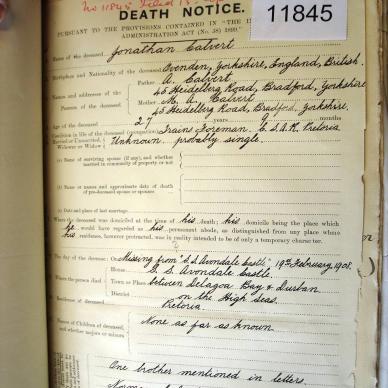 No 11845 Filed
11845
DEATH NOTICE.
PURSUANT TO THE PROVISIONS CONTAINED IN "THE
ADMINISTRATION ACT (No. 38) 1899."
Name of the deceased Jonathan Calvert
Birthplace and Nationality of the deceased Ovenden, Yorkshire, England, British.
Father A. Calvert
Names and addresses of the 65 Heidelberg Road, Bradford, Yorkshire
Parents of the deceased Mother M. A. Calvert
65 Heidelberg Road, Bradford, Yorkshire.
Age of the deceased 27 years 9 months
Condition in life of the deceased (occupation) Trains Foreman C.S.A.R. Pretoria
Married or Unmarried, Unknown probably single.
Widower or Widow
(a) Name of surviving spouse (if any); and whether
married in community of property or not
(b) Name or names and approximate date of death
of pre-deceased spouse or spouses
(c) Date and place of last marriage.
Where the deceased was domiciled at the time of his death; his domicile being the place which
he would have regarded as his permanent abode, as distinguished from any place where
his residence, however protracted, was in reality intended to be only of a temporary character.
The day of the decease: On Missing from "S.S. Avondale Castle," 19th February, 1908.
House S. S. Avondale Castle.
Where the person died Town or Place between Delagoa Bay & Durban
District on the High Seas.
Residence of deceased Pretoria.
Names of Children of deceased, None as far as known
and whether majors or minors
One brother mentioned in letters.